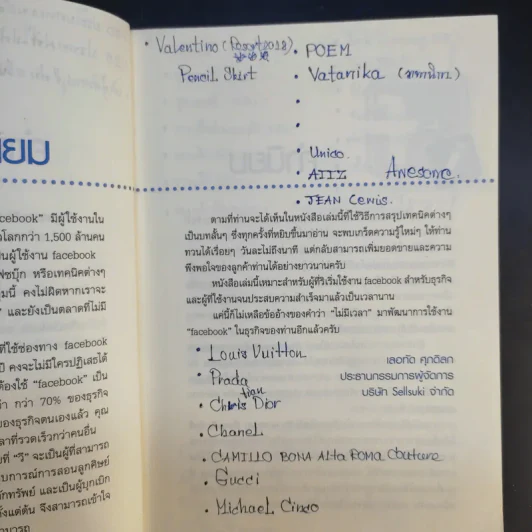 ยม
acebook" มีผู้ใช้งานใน
โลกกว่า 1,500 ล้านคน
ป็นผู้ใช้งาน facebook
ฟซบุ๊ก หรือเทคนิคต่างๆ
มนี้ คงไม่ผิดหากเราจะ
" และยังเป็นตลาดที่ไม่มี
ที่ใช้ช่องทาง facebook
ปี คงจะไม่มีใครปฏิเสธได้
ต้องใช้ "facebook" เป็น
ว่า กว่า 70% ของธุรกิจ
ของธุรกิจตนเองแล้ว คุณ
ลาที่รวดเร็วกว่าคนอื่น
ยที่ "รี" จะเป็นผู้ที่สามารถ
บการณ์การสอนลูกศิษย์
ลักทรัพย์ และเป็นผู้บุกเบิก
ซึ่งแต่ต้น จึงสามารถเข้าใจ
• Valentino
Pencil Skirt
• POEM
• Vatanika (วทานิกา)
•
•
• Unico.
• Awesome.
• JEAN Lewis.
ตามที่ท่านจะได้เห็นในหนังสือเล่มนี้ที่ใช้วิธีการสรุปเทคนิคต่างๆ
เป็นบทสั้นๆ ซึ่งทุกครั้งที่หยิบขึ้นมาอ่าน จะพบเกร็ดความรู้ใหม่ๆ ให้ท่าน
ทวนได้เรื่อยๆ วันละไม่ถึงนาที แต่กลับสามารถเพิ่มยอดขายและความ
พึงพอใจของลูกค้าท่านได้อย่างยาวนานครับ
หนังสือเล่มนี้เหมาะสำหรับผู้ที่ริเริ่มใช้งาน facebook สำหรับธุรกิจ
และผู้ที่ใช้งานจนประสบความสำเร็จมาแล้วเป็นเวลานาน
แค่นี้ก็ไม่เหลือข้ออ้างของคำว่า "ไม่มีเวลา" มาพัฒนาการใช้งาน
"facebook" ในธุรกิจของท่านอีกแล้วครับ
• Louis Vuitton
เลอทัด ศุภดิลก
• Prada
ประธานกรรมการผู้จัดการ
• Christian Dior
บริษัท Sellsuki จำกัด
• Chanel
• CAMILLO BONA Alta ROMA Couture
• Gucci
• Michael Cinco